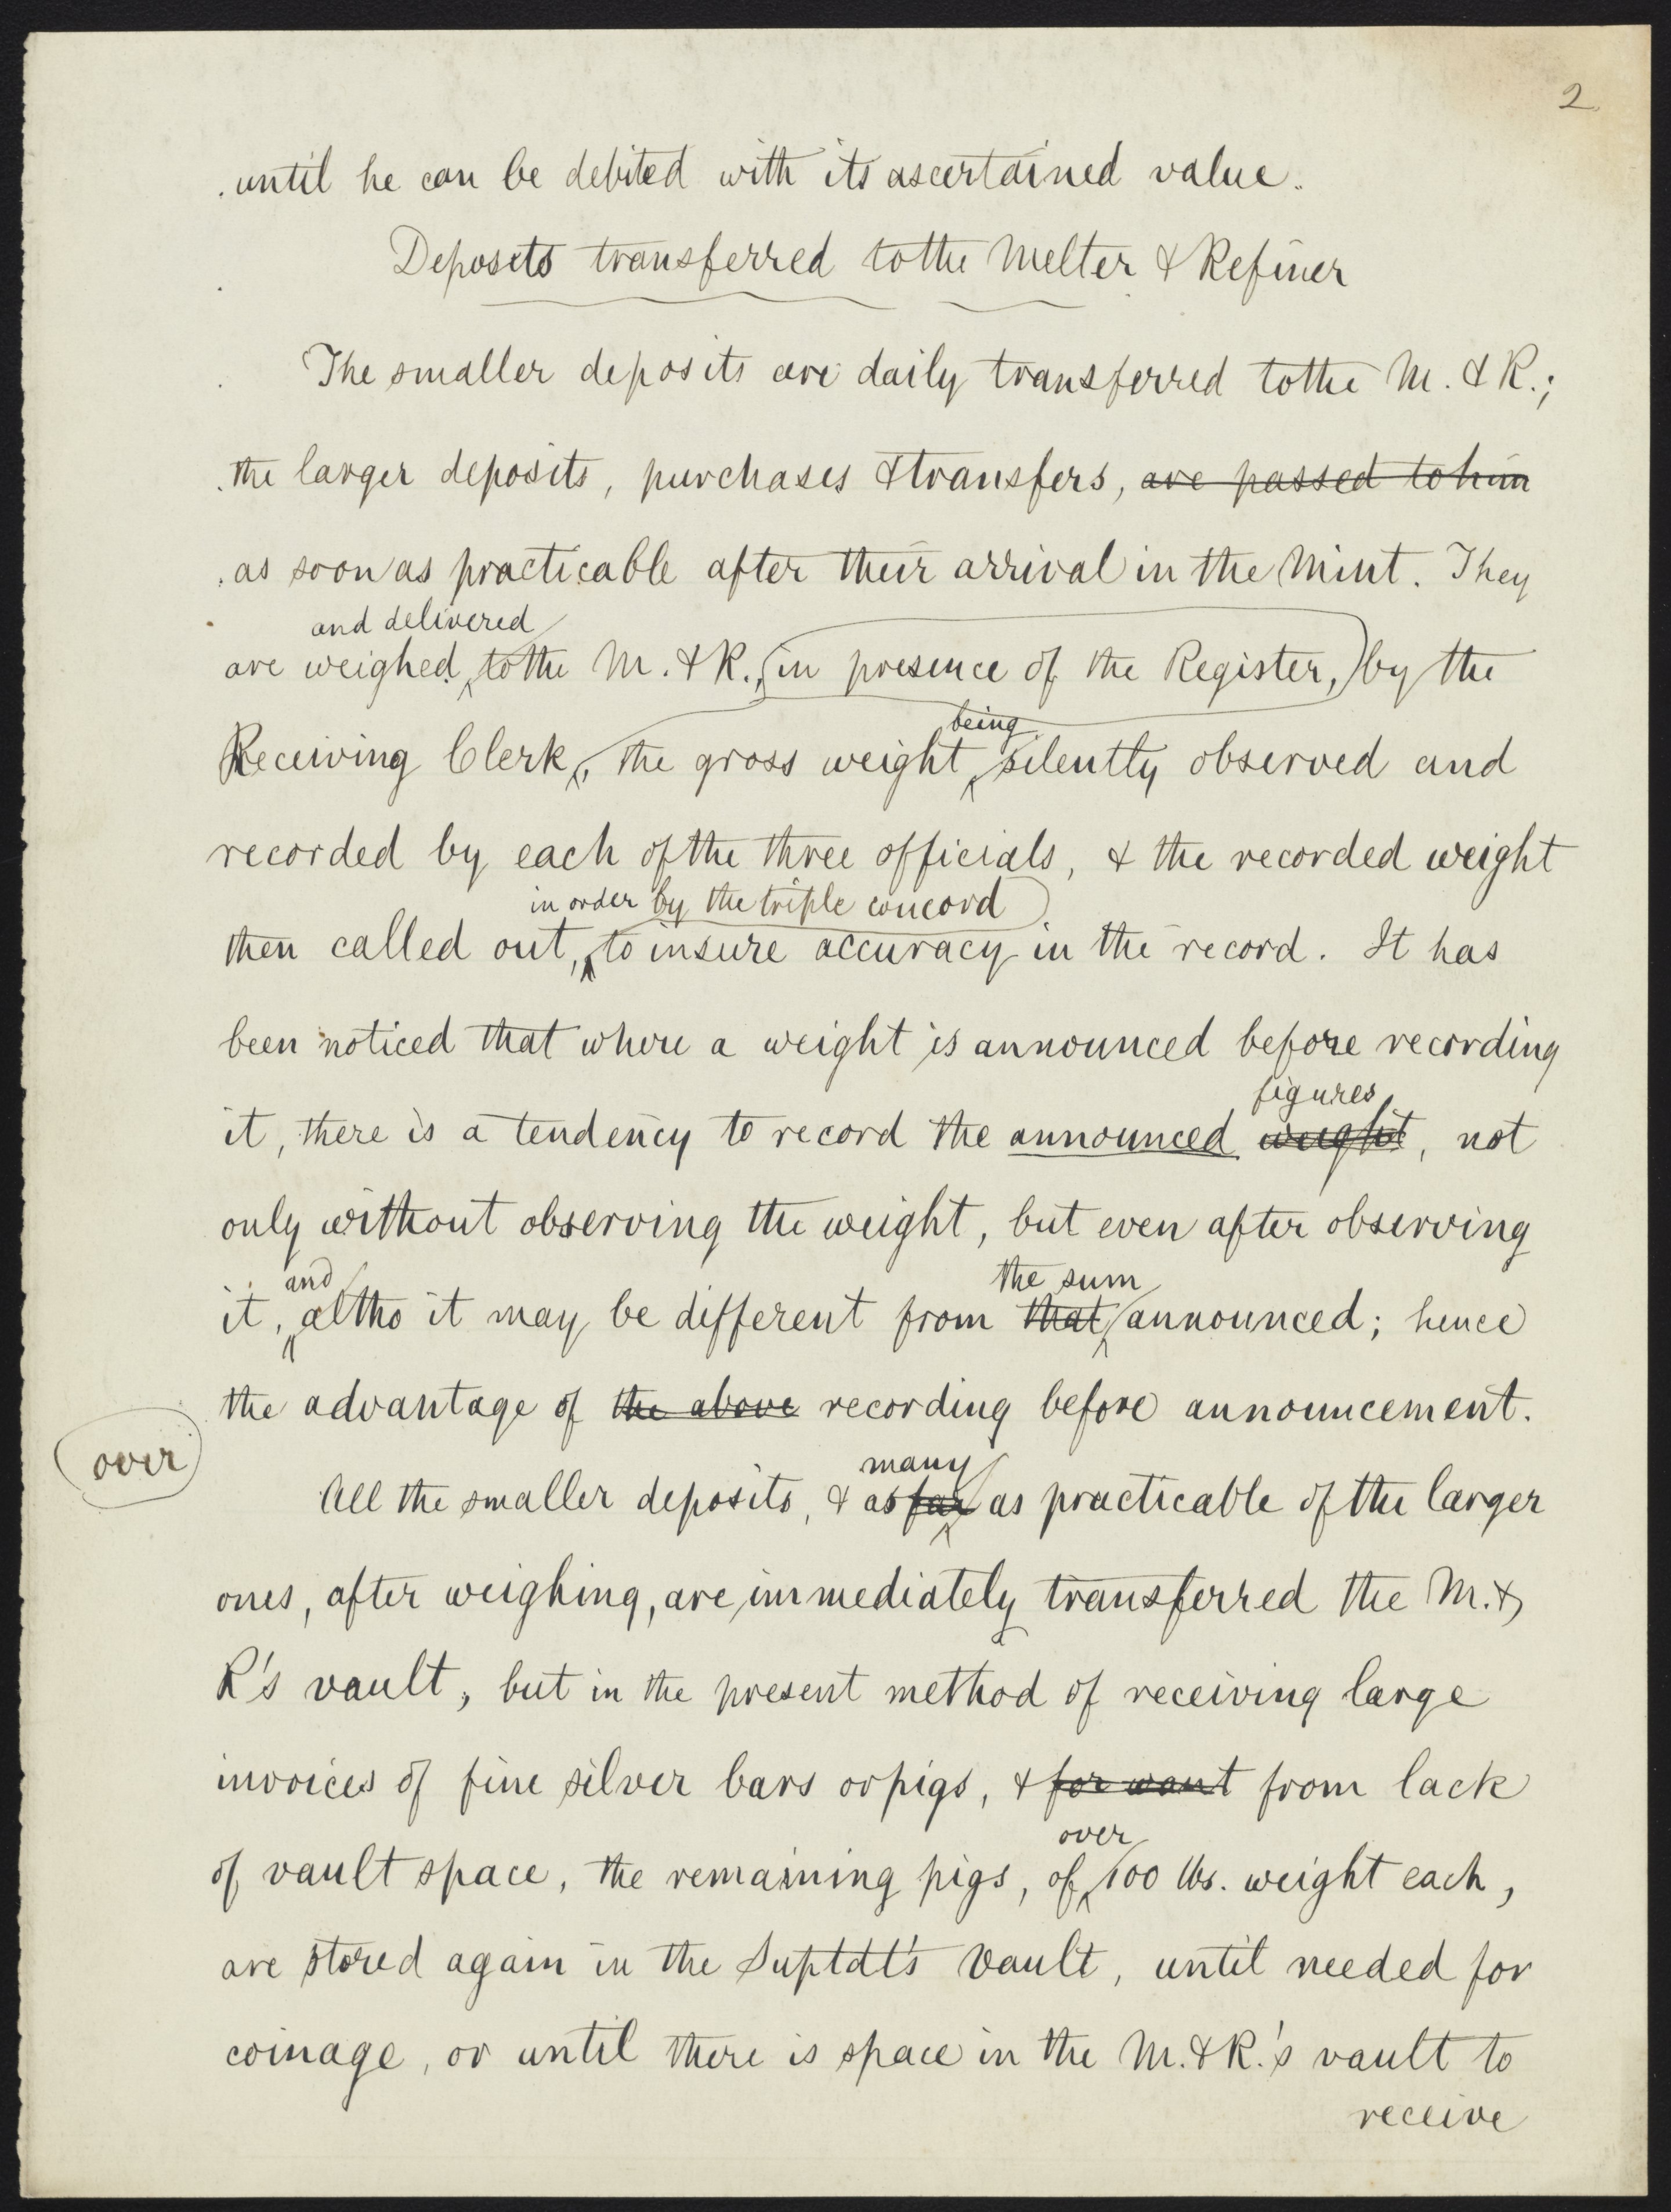 2.
until he can be debited with its ascertained value.
Deposits transferred to the Melter & Refiner
The smaller deposits are daily transferred to the M. & R.;
the larger deposits, purchases & transfers, are passed to him
as soon as practicable after their arrival in the Mint. They
and delivered
are weighed, to the M. & R., in presence of the Register, by the
being
Receiving Clerk, the gross weight silently observed and
recorded by each of the three officials, & the recorded weight
in order by the triple concord
then called out, to insure accuracy in the record. It has
been noticed that where a weight is announced before recording
figures
it, there is a tendency to record the announced weight, not
only without observing the weight, but even after observing
and the sum
it, altho it may be different from that announced; hence
the advantage of the above recording before announcement.
over
many
All the smaller deposits, & as far as practicable of the larger
ones, after weighing, are immediately transferred the M. &
R's vault, but in the present method of receiving large
invoices of fine silver bars or pigs, & for want from lack
over
of vault space, the remaining pigs, of 100 lbs. weight each,
are stored again in the Suptdt's vault, until needed for
coinage, or until there is space in the M. & R.'s vault to
receive